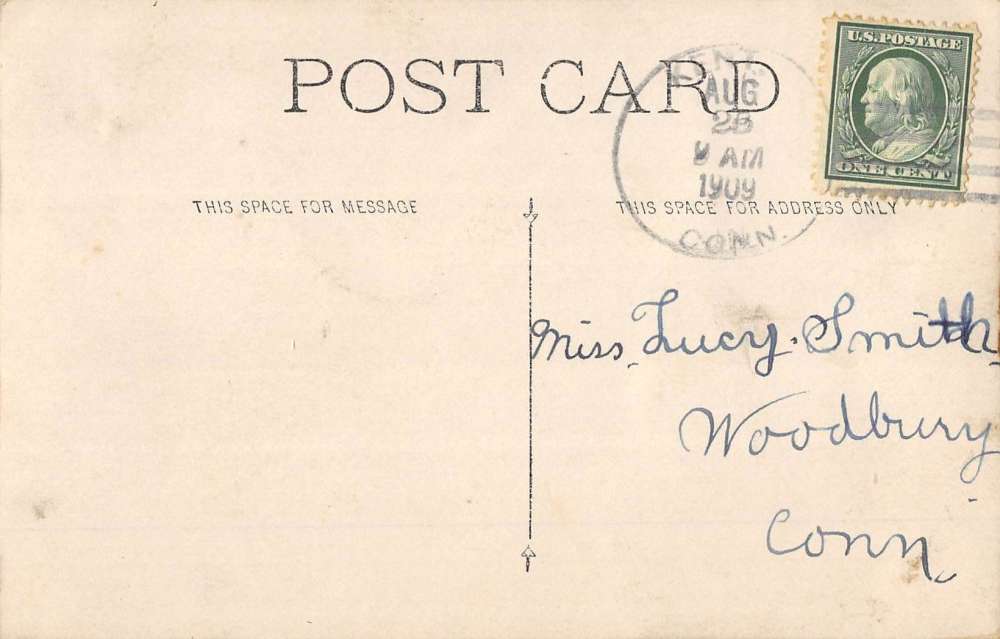 POST CARD
U.S. POSTAGE
ONE CENT
KENT.
AUG
AM
1909
CONN.
THIS SPACE FOR MESSAGE
THIS SPACE FOR ADDRESS ONLY
Miss. Lucy. Smith.
Woodbury
Conn.